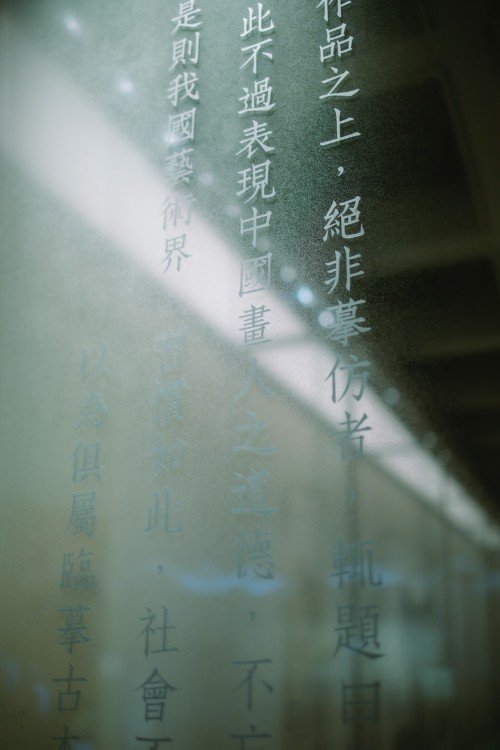 作品之上，絕非摹仿者，輒題
此不過表現中國畫人之道德，不
是則我國藝術界習慣如此，社會
以為俱屬臨摹古